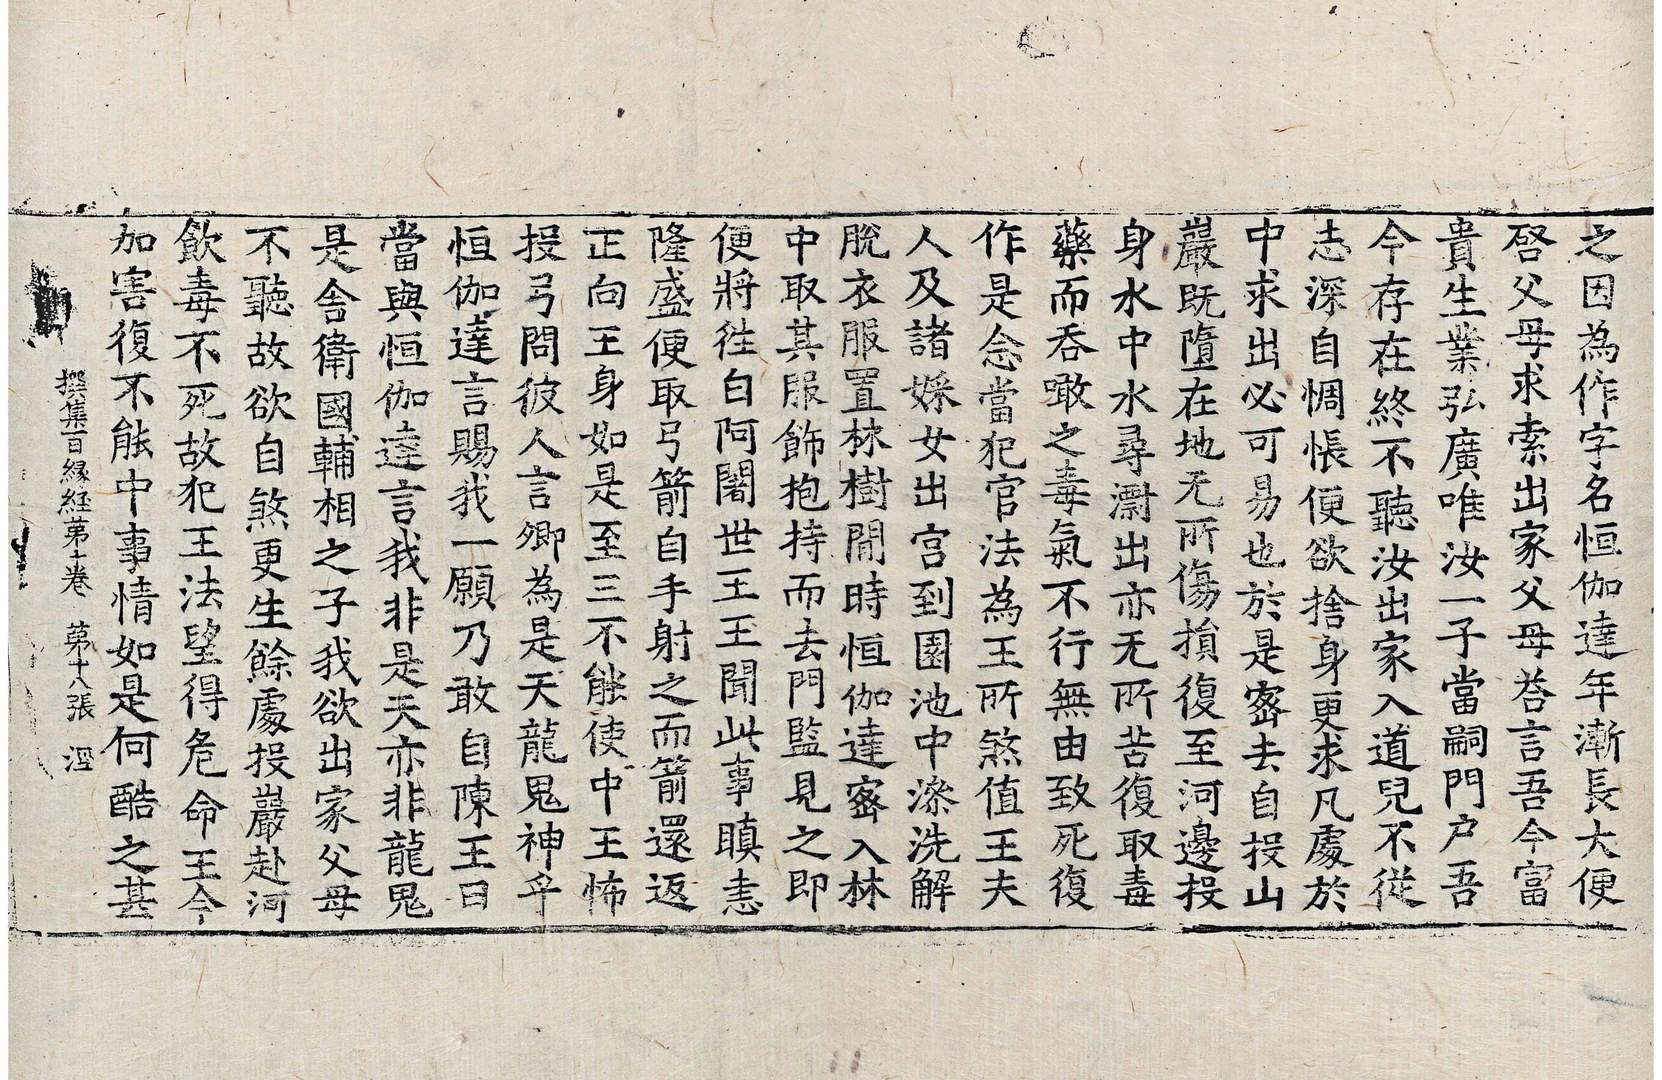 之因為作字名恒伽達年漸長大便
啓父母求索出家父母荅言吾今富
貴生業弘廣唯汝一子當嗣門户吾
今存在終不聽汝出家入道兒不從
志深自惆悵便欲捨身更求凡處於
中求出必可易也於是密去自投山
巖既墮在地无所傷損復至河邊投
身水中水尋㵱出亦无所苦復取毒
藥而吞噉之毒氣不行無由致死復
作是念當犯官法為王所煞值王夫
人及諸婇女出宫到園池中㴽洗解
脫衣服置林樹間時恒伽達密入林
中取其服飾抱持而去門監見之即
便將徃白阿闍世王王聞此事瞋恚
隆盛便取弓箭自手射之而箭還返
正向王身如是至三不能使中王怖
投弓問彼人言卿為是天龍鬼神乎
恒伽達言賜我一願乃敢自陳王曰
當與恒伽逹言我非是天亦非龍鬼
是舍衛國輔相之子我欲出家父母
不聽故欲自煞更生餘處投巖赴河
飲毒不死故犯王法望得危命王今
加害復不能中事情如是何酷之甚
撰集百緣経第十卷 第十八張 溼